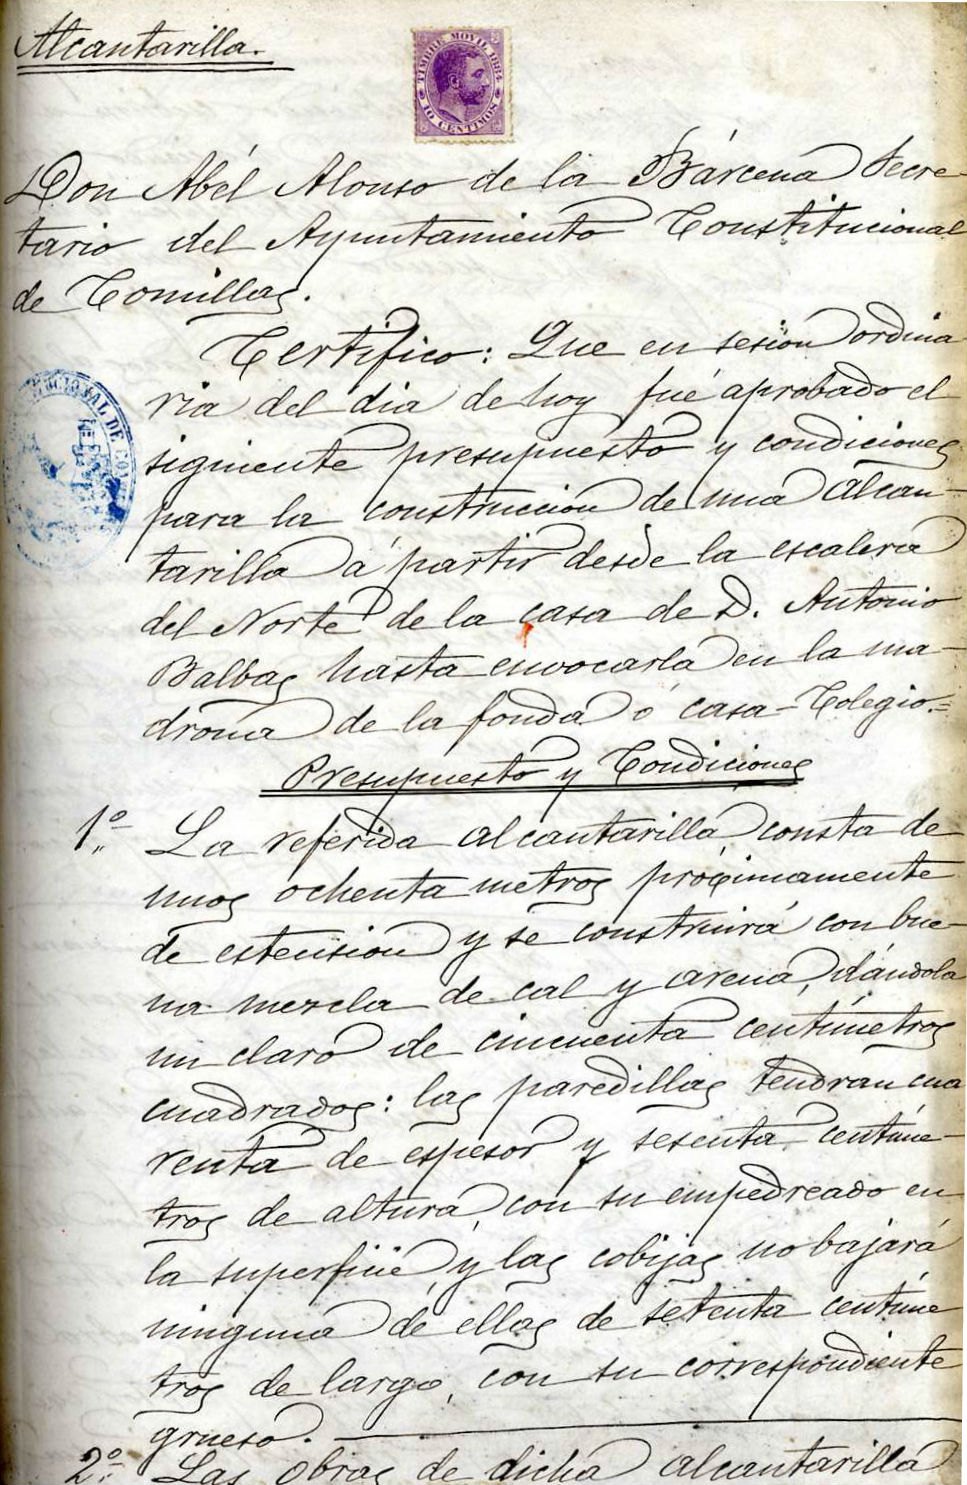 Alcantarilla.
TIMBRE MOVIL 1884
10 CENTIMOS
Don Abél Alonso de la Bárcena Secre-
tario del Ayuntamiento Constitucional
de Comillas.
Certifico: Que en sesion ordina-
ria del dia de hoy fué aprobado el
siguiente presupuesto y condiciones
para la construccion de una alcan-
tarilla á partir desde la escalera
del Norte de la casa de D. Antonio
Balbas hasta envocarla en la ma-
drona de la fonda ó casa-Colegio.=
Presupuesto y Condiciones
1º La referida alcantarilla, consta de
unos ochenta metros prócimamente
de estension y se construirá con bue-
na mezcla de cal y arena, dándola
un claro de cincuenta centímetros
cuadrados: las paredillas tendran cua
renta de espesor y sesenta centíme-
tros de altura, con su empedreado en
la superfiie, y las cobijas no bajará
ninguna de ellas de setenta centíme
tros de largo, con su correspondiente
grueso.
2º Las obras de dicha alcantarilla